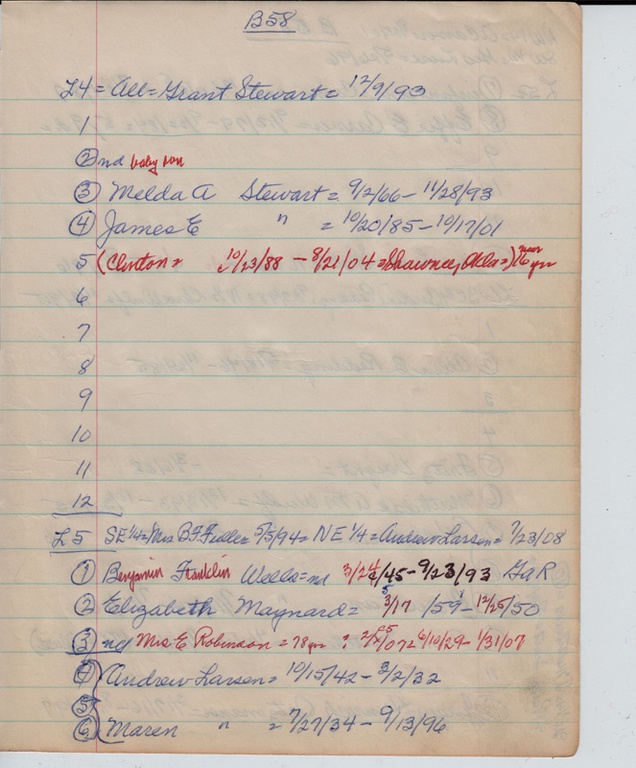 B58
L4 = All = Grant Stewart = 12/9/93
1
② nd baby son
③ Melda A Stewart = 9/2/66 - 11/28/93
④ James E " = 10/20/85 - 10/17/01
5 (Clinton = 10/23/88 - 8/21/04 = Shawnee, Okla =) near 16 yrs
6
7
8
9
10
11
12
L5 SE 1/4 = Mrs B.F. Fuller = 5/5/94 = NE 1/4 = Andrew Larsen = 7/23/08
① Benjamin Franklin Wells = nd 3/24/45 - 9/23/93 GaR
② Elizabeth Maynard = 3/17/59 - 12/25/50
③ nd Mrs E Robinson = 78 yr : 6/10/29 - 1/31/07
④ Andrew Larsen = 10/15/42 - 3/2/32
⑤
⑥ Maren " = 7/27/34 - 9/13/96